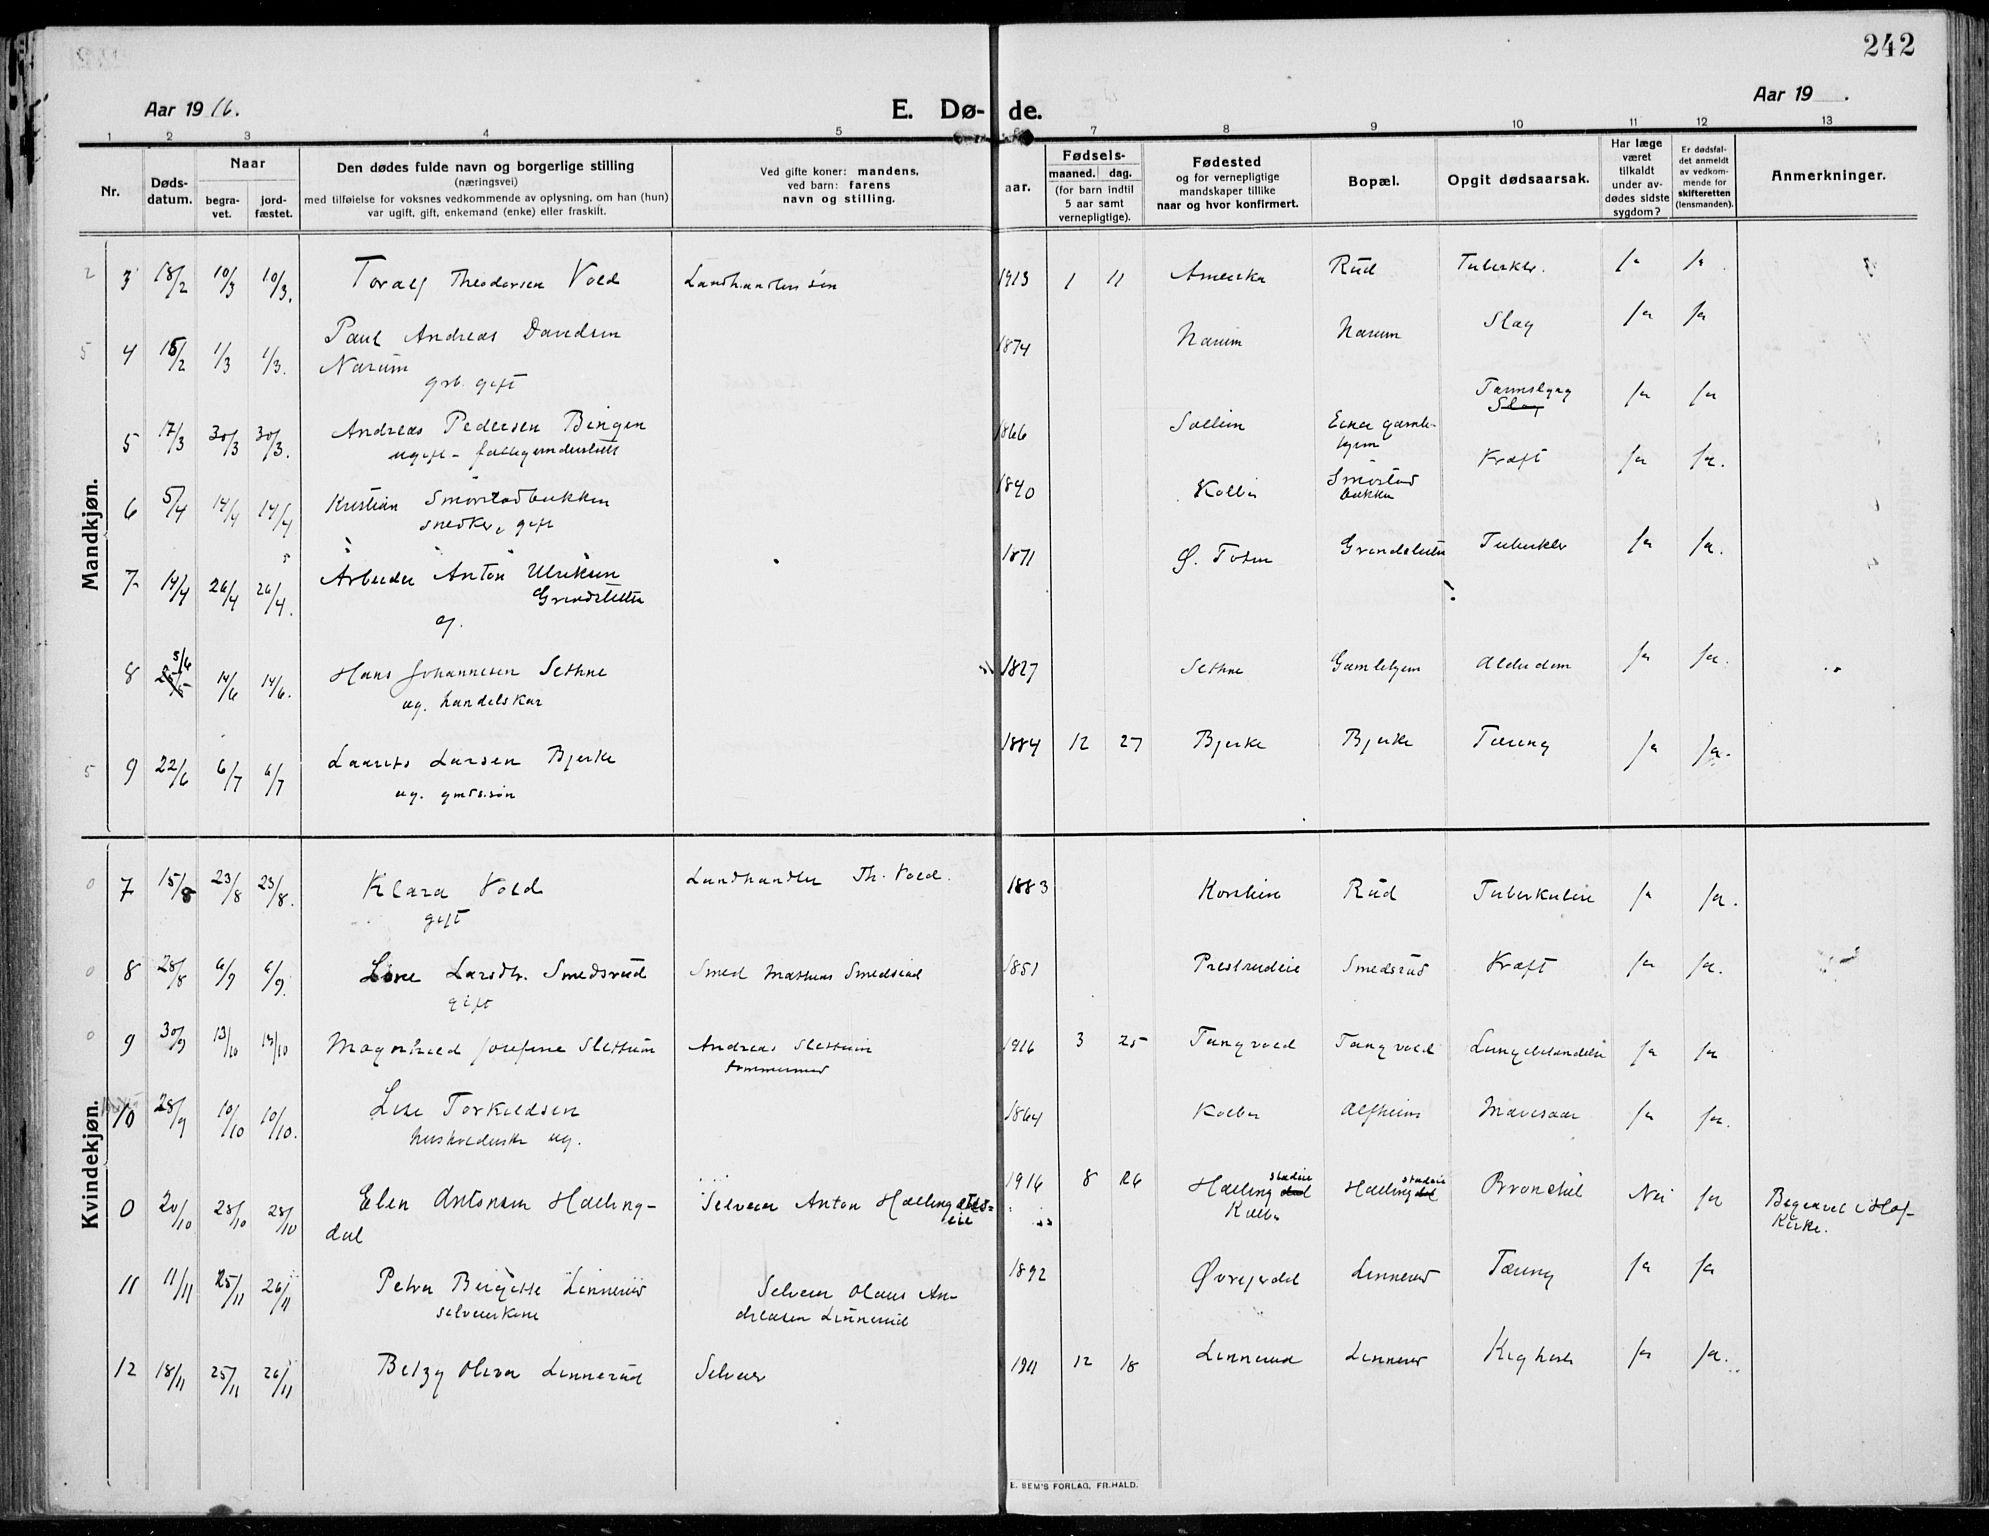 242
Aar 1916.
E. Dø- de.
Aar 19 .
1 2 3 4 5 6 7 8 9 10 11 12 13
Nr.
Døds-
datum.
Naar
begra-
vet.
jord-
fæstet.
Den dødes fulde navn og borgerlige stilling
(næringsvei)
med tilføielse for voksnes vedkommende av oplysning, om han (hun)
var ugift, gift, enkemand (enke) eller fraskilt.
Ved gifte koner: mandens,
ved barn: farens
navn og stilling.
aar.
Fødsels-
maaned. dag.
(for barn indtil
5 aar samt
vernepligtige).
Fødested
og for vernepligtige
mandskaper tillike
naar og hvor konfirmert.
Bopæl.
Opgit dødsaarsak.
Har læge
været
tilkaldt
under av-
dødes sidste
sygdom?
Er dødsfal-
det anmeldt
av vedkom-
mende for
skifteretten
(lensmanden).
Anmerkninger.
Mandkjøn.
2 3 18/2 10/3 10/3. Toralf Theodorsen Vold Landhandlers søn 1913 1 11 Amerika Rud Tuberkler. Ja Ja
5 4 15/2 1/3 1/3. Paul Andreas Davidsen 1874 Narum Narum Slag Ja Ja
Narum
grb. gift
5 17/3 30/3 30/3. Andreas Pedersen Bingen 1866 Solheim Eina gamle- Tarmslyng Ja Ja
ugift - fattigunderstøtt hjem Slag
6 5/4 14/4 14/4 Kristian Smørstadbakken 1840 Kolbu Smørstad Kræft Ja Ja.
snedker, gift bakke
7 14/4 26/4 26/4. Arbeider Anton Ulriksen 1871 Ø. Toten Tuberkler Ja Ja.
8 5/6 25/5 14/6 14/6. Hans Johannesen Sethne 1827 Sethne Gamlehjem Alderdom Ja Ja.
ug. handelskar
5 9 22/6 6/7 6/7 Laurits Larsen Bjerke 1884 12 27 Bjerke Bjerke Tæring Ja Ja.
ug. gmds.søn
Kvindekjøn.
0 7 15/8 23/8 23/8. Klara Vold Landhandler Th. Vold. 1883 Rud Tuberkulose Ja Ja.
gift
0 8 28/8 6/9 6/9. Line Larsdtr. Smedsrud Smed Mathias Smedsrud 1851 Smedsrud Kræft Ja Ja.
gift
0 9 30/9 13/10 13/10 Magnhild Josefine Slettum Andreas Slettum 1916 3 25 Tangvold Tangvold Lungebetændelse Ja Ja
tømmermd
10 28/9 10/10 10/10. Lise Torkildsen 1864 Kolbu Alfheim Mavesaar Ja Ja.
husholderske ug.
0 20/10 28/10 28/10 Elen Antonsen Hælling- Selveier Anton Hællingstad- 1916 8 26 Hællingdal stadeie Hællingdal stadeie Bronchit Nei Ja Begravet i Hof
dal eie Kolbu Kirke.
11 11/11 25/11 26/11 Petra Birgitte Linnerud Selveier Olaus An- 1892 Øvregjerdet Linnerud Tæring Ja Ja
selveierkone dreasen Linnerud
12 18/11 25/11 26/11 Betzy Olava Linnerud Selveier 1911 12 18 Linnerud Linnerud Kighoste Ja Ja.
E. SEM'S FORLAG, FR.HALD.